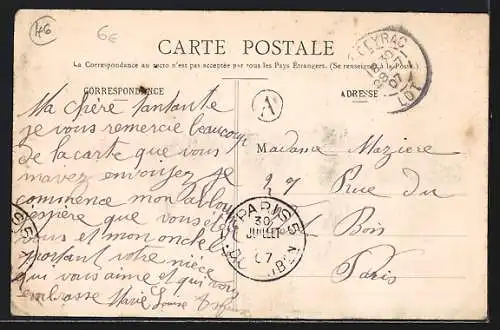 46
6€
CARTE POSTALE
La Correspondance au recto n'est pas acceptée par tous les Pays Étrangers. (Se renseigner à la Poste.)
CORRESPONDANCE
ADRESSE
A
CEYRAC
LOT
Ma chère tantante
je vous remercie beaucoup
de la carte que vous
mavez envoiyez je
commence mon albou
j'espère que vous
vous et mon oncle
portant votre nièce
qui vous aime et qui vous
embrasse Marie Louise
Madame Maziere
27 Rue du
Bois
Paris
PARIS 5
30
JUILLET
07